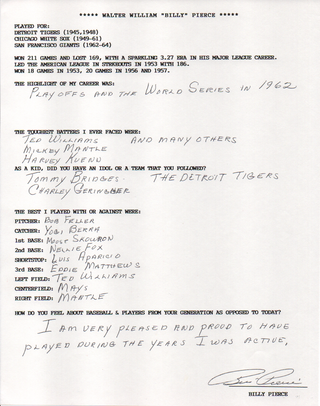 ***** WALTER WILLIAM "BILLY" PIERCE *****
PLAYED FOR:
DETROIT TIGERS (1945,1948)
CHICAGO WHITE SOX (1949-61)
SAN FRANCISCO GIANTS (1962-64)
WON 211 GAMES AND LOST 169, WITH A SPARKLING 3.27 ERA IN HIS MAJOR LEAGUE CAREER.
LED THE AMERICAN LEAGUE IN STRIKEOUTS IN 1953 WITH 186.
WON 18 GAMES IN 1953, 20 GAMES IN 1956 AND 1957.
THE HIGHLIGHT OF MY CAREER WAS:
PLAYOFFS AND THE WORLD SERIES IN 1962
THE TOUGHEST BATTERS I EVER FACED WERE:
TED WILLIAMS AND MANY OTHERS
MICKEY MANTLE
HARVEY KUENN
AS A KID, DID YOU HAVE AN IDOL OR A TEAM THAT YOU FOLLOWED?
TOMMY BRIDGES THE DETROIT TIGERS
CHARLEY GERINGHER
THE BEST I PLAYED WITH OR AGAINST WERE:
PITCHER: BOB FELLER
CATCHER: YOGI BERRA
1st BASE: MOOSE SKOWRON
2nd BASE: NELLIE FOX
SHORTSTOP: LUIS APARICIO
3rd BASE: EDDIE MATTHEWS
LEFT FIELD: TED WILLIAMS
CENTERFIELD: MAYS
RIGHT FIELD: MANTLE
HOW DO YOU FEEL ABOUT BASEBALL & PLAYERS FROM YOUR GENERATION AS OPPOSED TO TODAY?
I AM VERY PLEASED AND PROUD TO HAVE
PLAYED DURING THE YEARS I WAS ACTIVE.
Billy Pierce
BILLY PIERCE